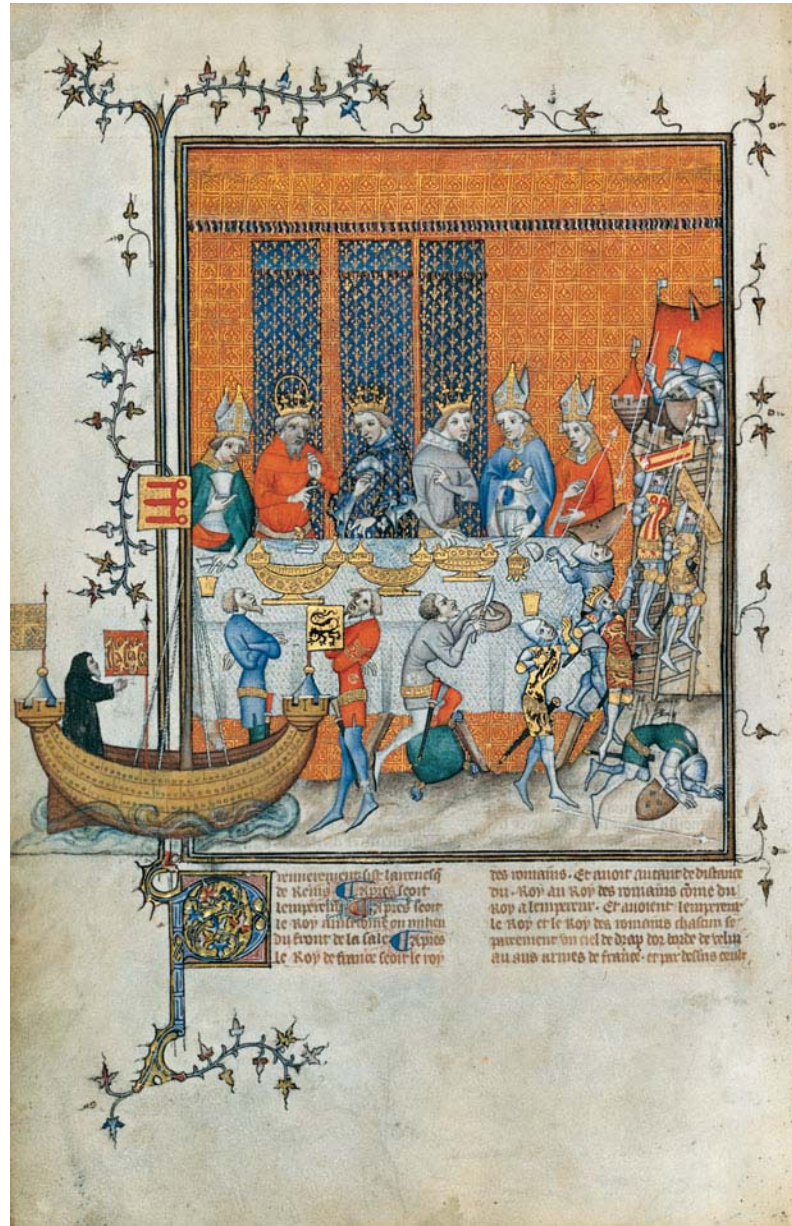 Premierement sist larcevesq
de Reins Apres seoit
lempereur Apres seoit
le Roy ainsi comme ou milieu
du front de la sale Apres
le Roy de france seoit le roy
des romains. Et avoit autant de distance
du Roy au Roy des romains come du
Roy a lempereur. Et avoient lempereur
le Roy et le Roy des romains chascun se
parement un ciel de drap dor borde de velu
au aus armes de france. et par dessus ceulx